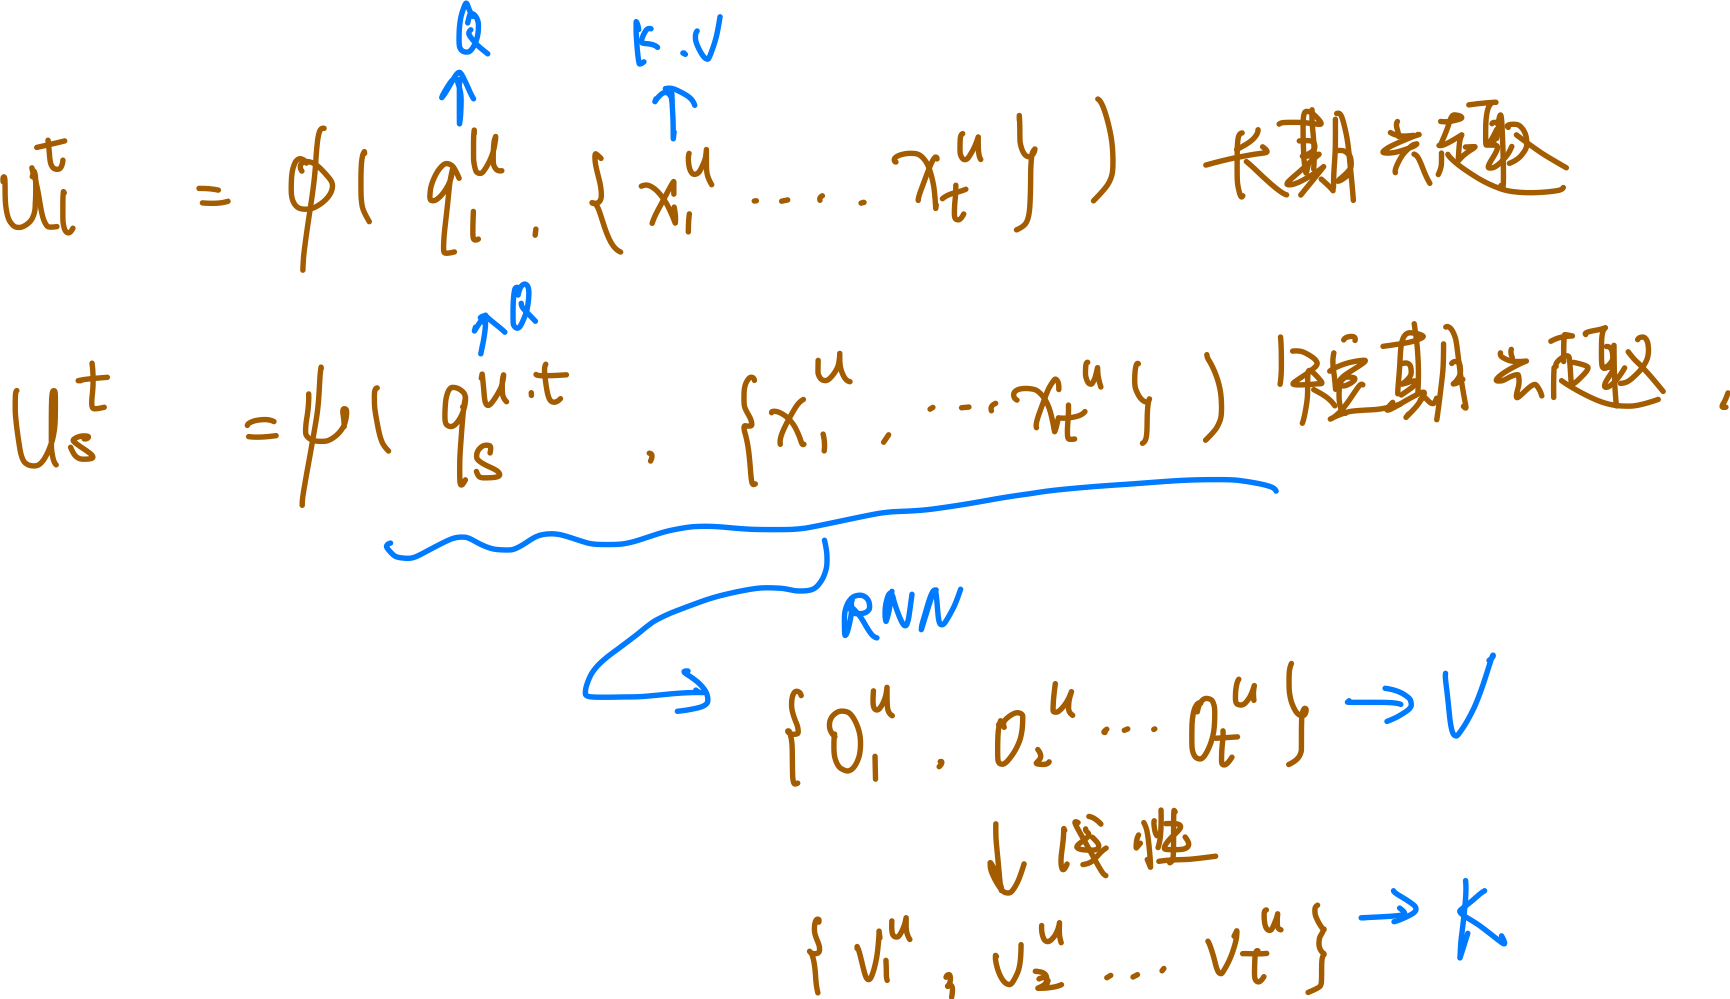 Q K.V
u_l^t = φ( q_l^u , {x_1^u ..... x_t^u} ) 长期兴趣
Q
u_s^t = ψ( q_s^{u.t} , {x_1^u , .... x_t^u} ) 短期兴趣 .
RNN
{o_1^u , o_2^u ... o_t^u} → V
↓ 线性
{v_1^u , v_2^u ... v_t^u} → K